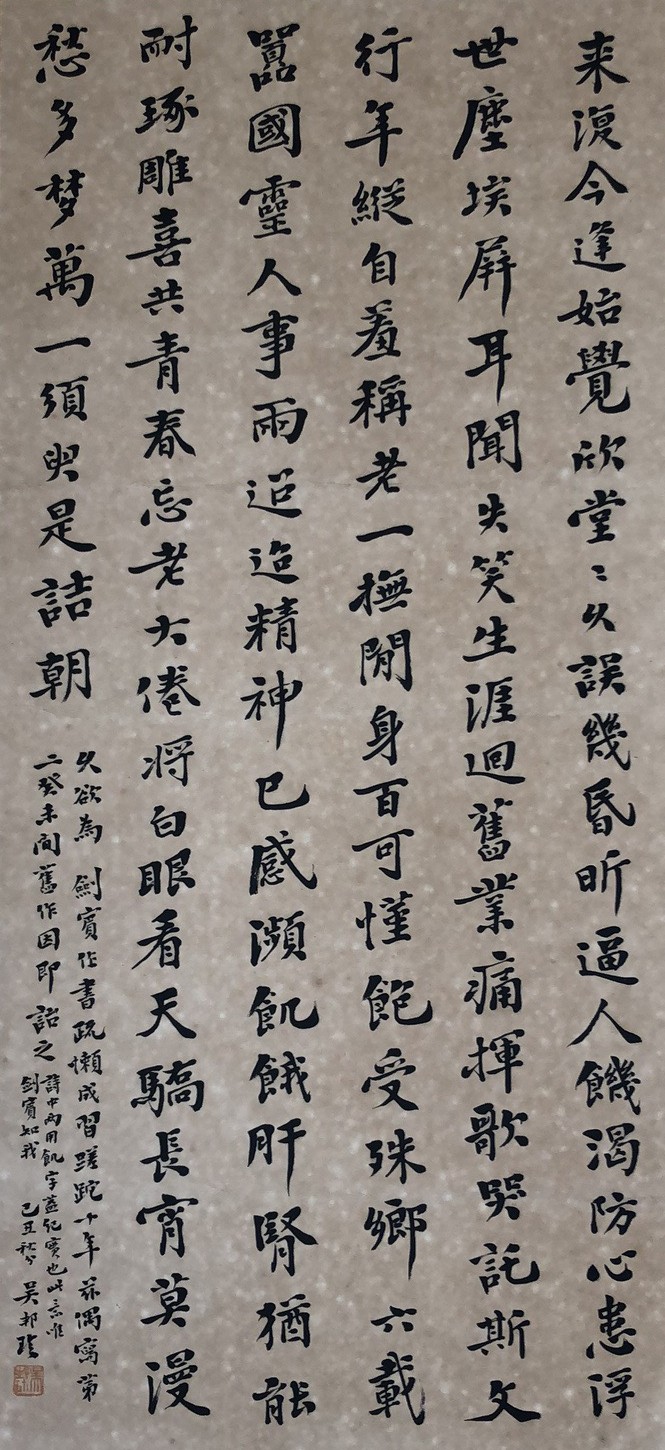 来復今逢始覺欣堂〻久誤幾昏昕逼人饑渴防心患浮
世塵埃屏耳聞失笑生涯迴舊業痛揮歌哭託斯文
行年縱自羞稱老一撫閒身百可慬飽受殊鄉六載
囂國靈人事兩迢迢精神已感瀕飢餓肝腎猶能
耐琢雕喜共青春忘老大倦將白眼看天驕長宵莫漫
愁多梦萬一須臾是詰朝
久欲為劍賓作書疏懶成習蹉跎十年茲偶寫第
二癸未間舊作因即詒之
詩中兩用飢字蓋紀實也此意唯
劍賓知我 己丑 吳邦